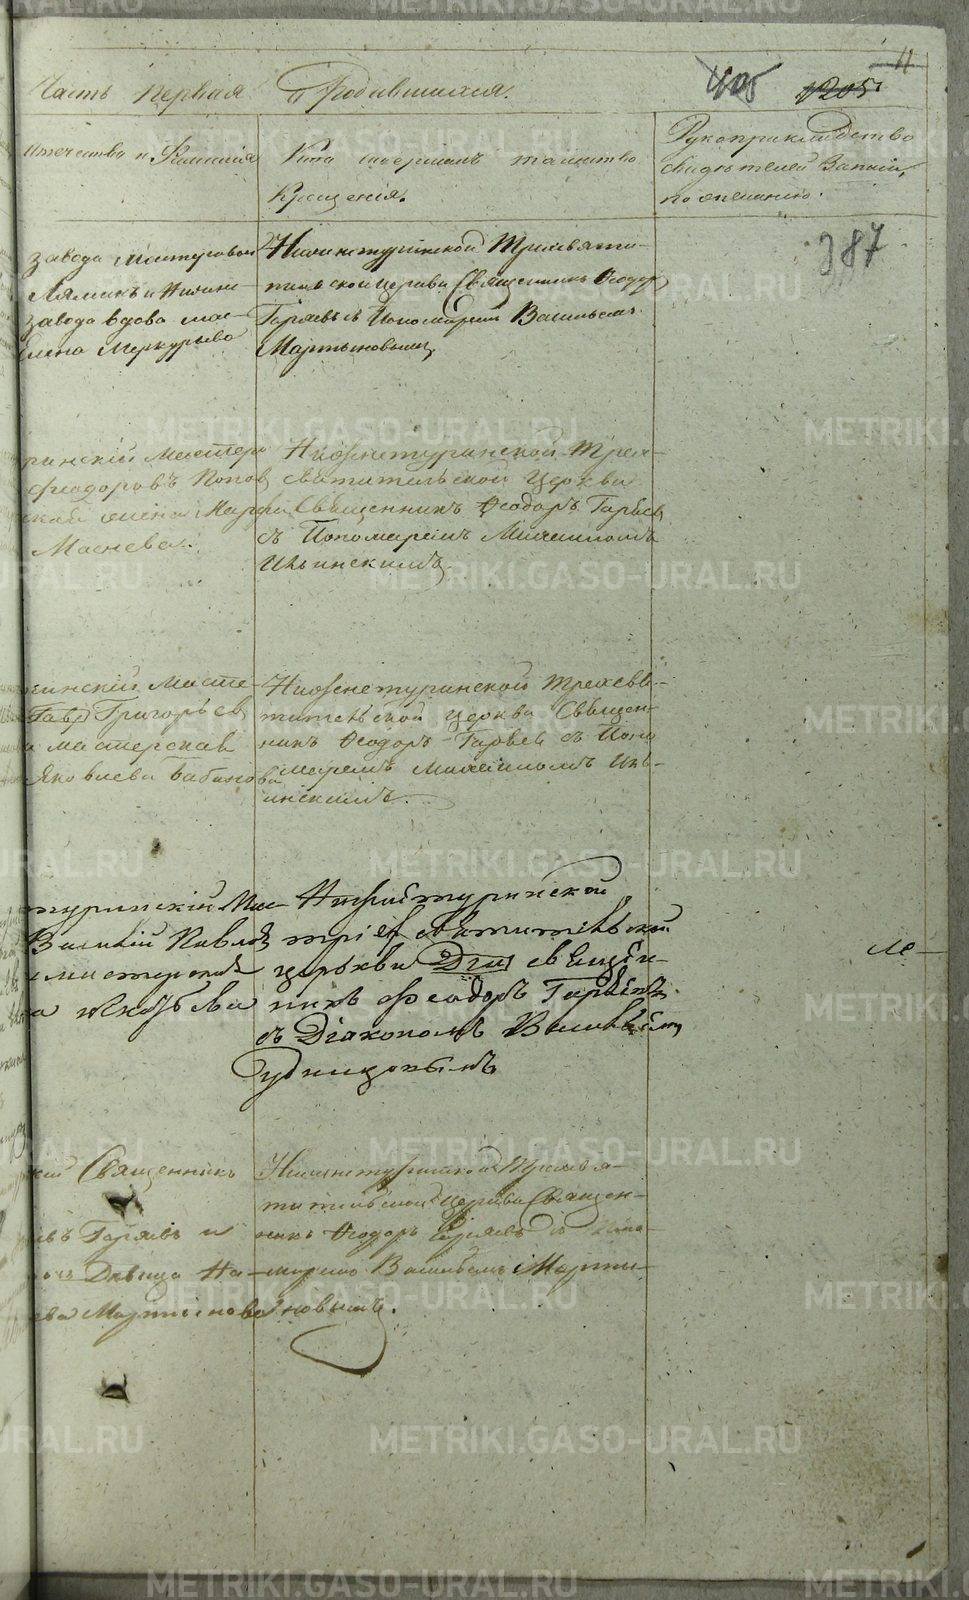 Часть первая О родившихся.
405 1205 11
отчество и Фамилія
Кто совершалъ таинство
Крещенія.
Рукоприкладство
свидѣтелей записи
по желанію.
387
завода Мастеровой
завода вдова мас-
Елена Меркурьева
Нижнетуринской Трехсвяти-
тельской церкви Священникъ Ѳеодоръ
Гаряевъ съ Пономаремъ Васильемъ
Мартыновымъ
ринскій мастеро
Феодоровъ Попов
ская жена Марфа
Маснева.
Нижнетуринской Трех-
святительской Церкви
Священникъ Ѳеодоръ Гаряев
съ Пономаремъ Михаиломъ
Ильинскимъ
ринскій масте-
Гавр Григорьев
мастерская
Яковлева Бабинова
Нижнетуринской Трехсвя-
тительской церкви Священ-
никъ Ѳеодоръ Гаряев съ Поно
маремъ Михаиломъ Иль-
инскимъ.
туринскій Мас-
Василій Павлов
мастеровой
Яковлева
Нижнетуринской
трiехсвятительской
церькви священ-
никъ Феодоръ Гаряевъ
съ Діакономъ Васильемъ
Удинцовымъ
ле-
кій Священникъ
евъ Гаряевъ и
Дѣвица На-
ева Мартынова
Нижнетуринской Трехсвя-
тительской церкви Священ-
никъ Ѳеодоръ Гаряевъ съ Поно-
маремъ Васильемъ Марты-
новымъ.
METRIKI.GASO-URAL.RU